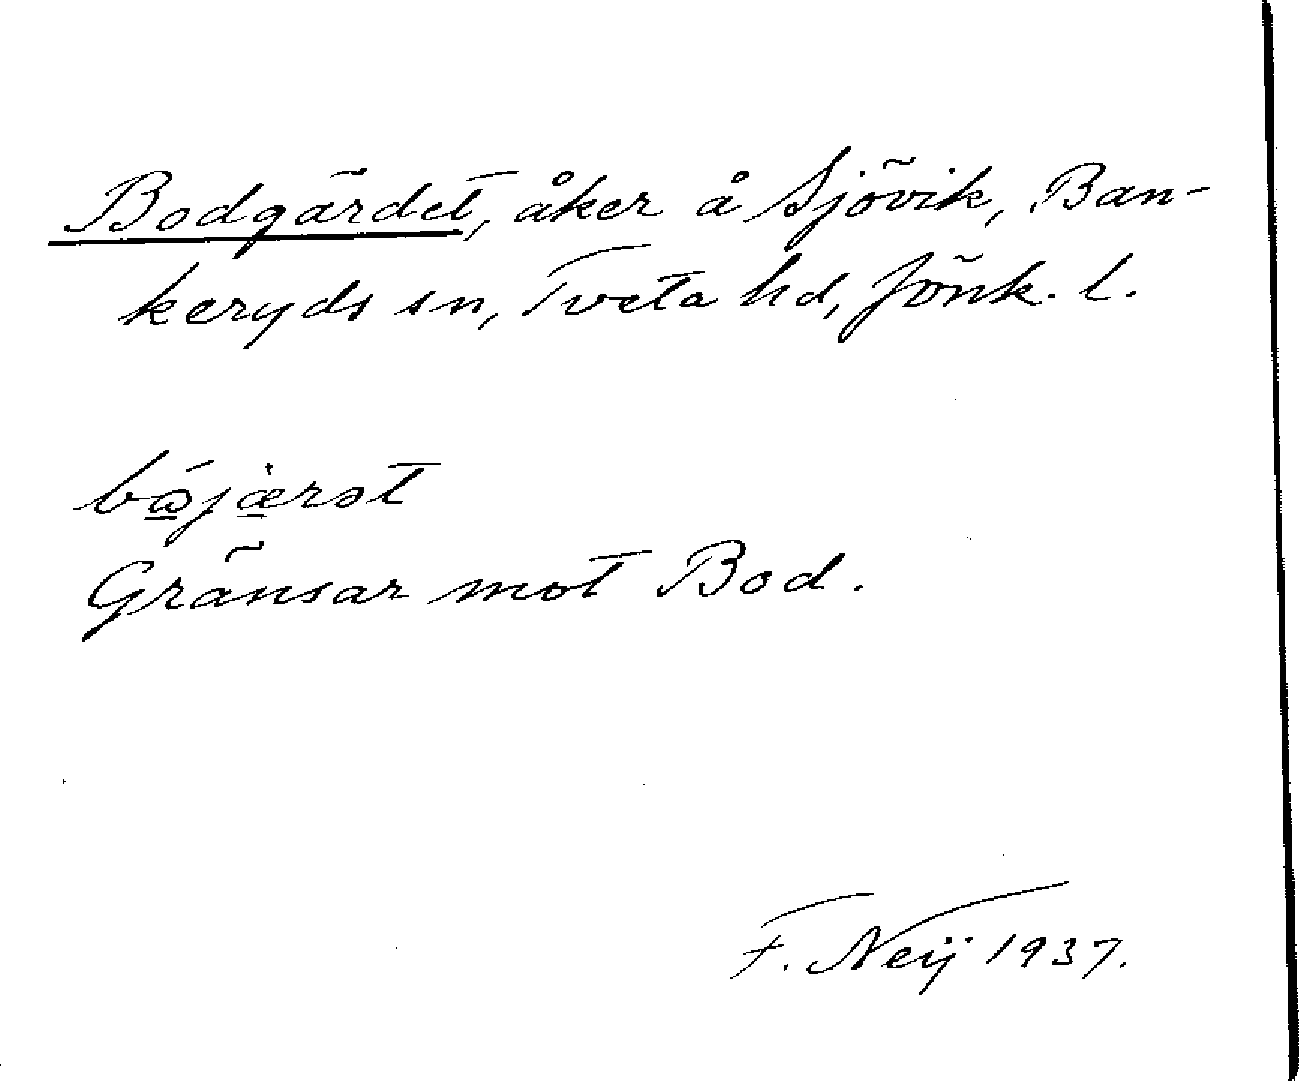 Bodgärdet, åker å Sjövik, Ban-
keryds sn, Tveta hd, Jönk. l.
Gränsar mot Bod.
F. Neij 1937.